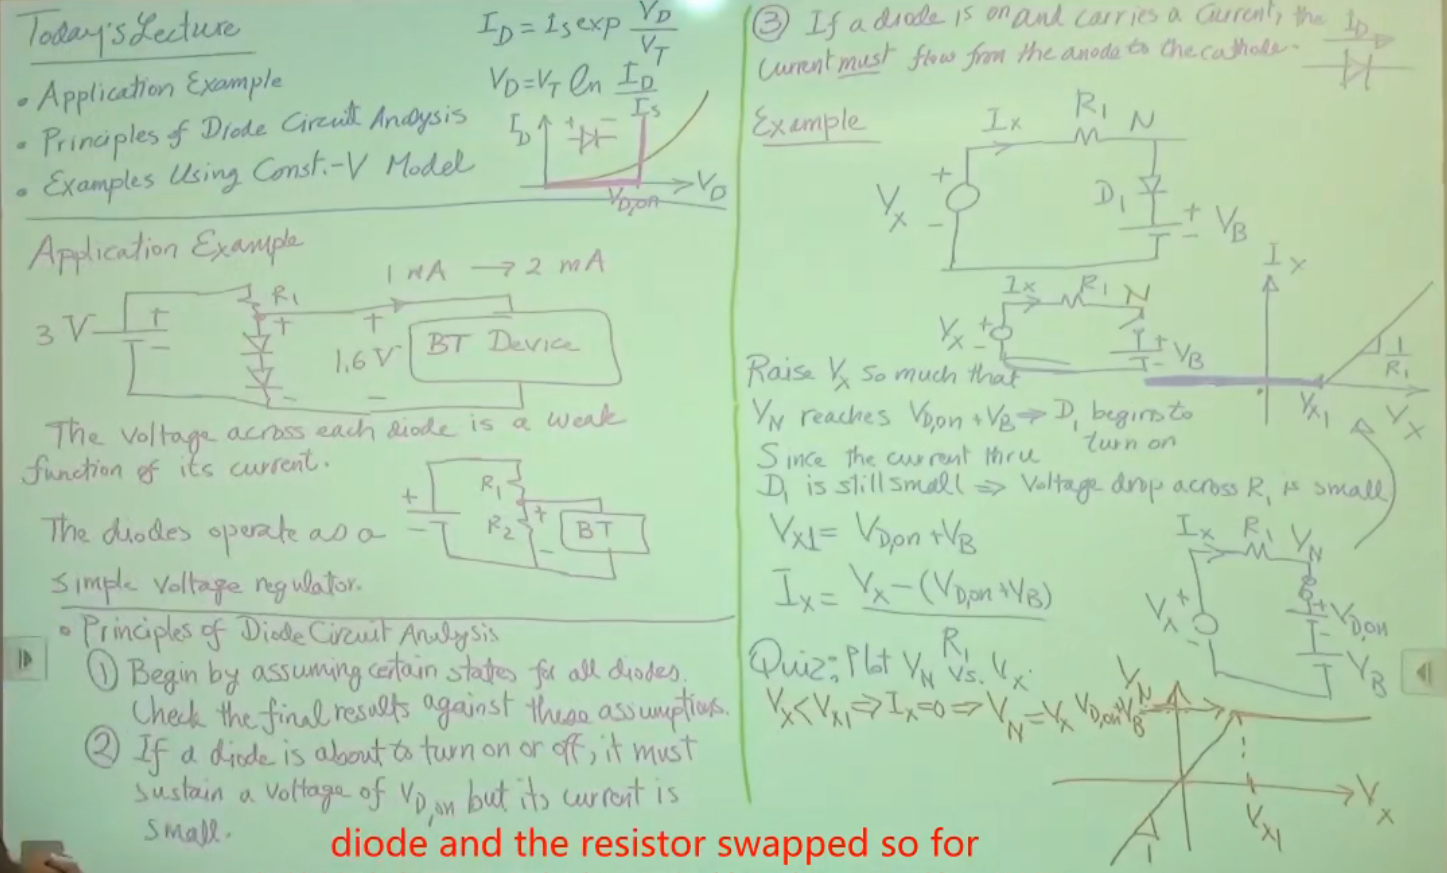 Today's Lecture
• Application Example
• Principles of Diode Circuit Analysis
• Examples Using Const.-V Model
I_D = I_S exp V_D/V_T
V_D = V_T ln I_D/I_S
I_D
+ -
V_D,on
V_D
Application Example
1 nA → 2 mA
3 V
+
-
R1
+
-
+
1.6 V
-
BT Device
The voltage across each diode is a weak
function of its current.
The diodes operate as a
simple voltage regulator.
+
-
R1
R2
+
-
BT
• Principles of Diode Circuit Analysis
① Begin by assuming certain states for all diodes.
Check the final results against these assumptions.
② If a diode is about to turn on or off, it must
sustain a voltage of V_D,on but its current is
small.
③ If a diode is on and carries a current, the
current must flow from the anode to the cathode.
I_D
Example
I_X
R1
N
V_X
+
-
D1
+
-
V_B
I_X
R1
N
V_X
+
-
+
-
V_B
I_X
1/R1
V_X1
V_X
Raise V_X so much that
V_N reaches V_D,on + V_B ⇒ D1 begins to
turn on
Since the current thru
D1 is still small ⇒ Voltage drop across R1 is small
V_X1 = V_D,on + V_B
I_X = V_X - (V_D,on + V_B)/R1
I_X
R1
V_N
V_X
+
-
+
-
V_D,on
V_B
Quiz: Plot V_N vs. V_X.
V_X < V_X1 ⇒ I_X = 0 ⇒ V_N = V_X
V_N
V_D,on + V_B
V_X
V_X1
1
diode and the resistor swapped so for